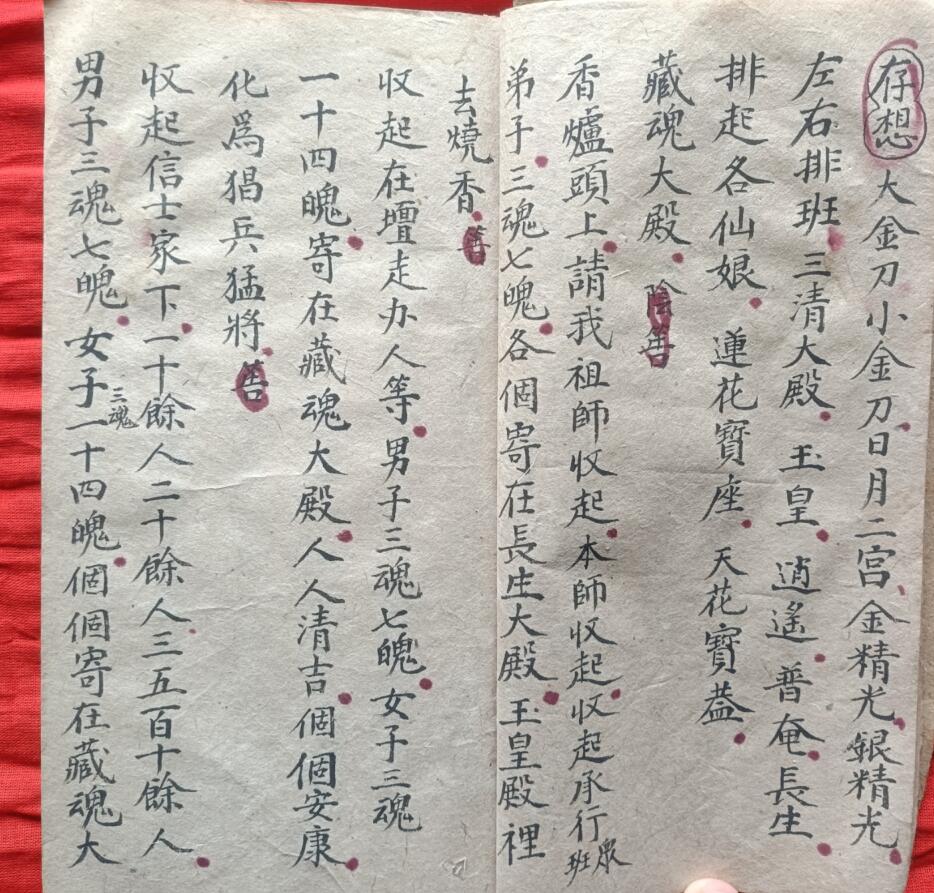 存想 大金刀小金刀日月二宫金精光銀精光
左右排班三清大殿玉皇逍遙普奄長生
排起各仙娘蓮花寳座天花寳蓋
藏魂大殿 陰
香爐頭上請我祖師收起本師收起收起承行衆班
弟子三魂七魄各個寄在長生大殿玉皇殿裡
去燒香
收起在壇走办人等男子三魂七魄女子三魂
一十四魄寄在藏魂大殿人人清吉個個安康
化爲猖兵猛將
收起信士家下一十餘人二十餘人三五百十餘人
男子三魂七魄女子三魂一十四魄個個寄在藏魂大